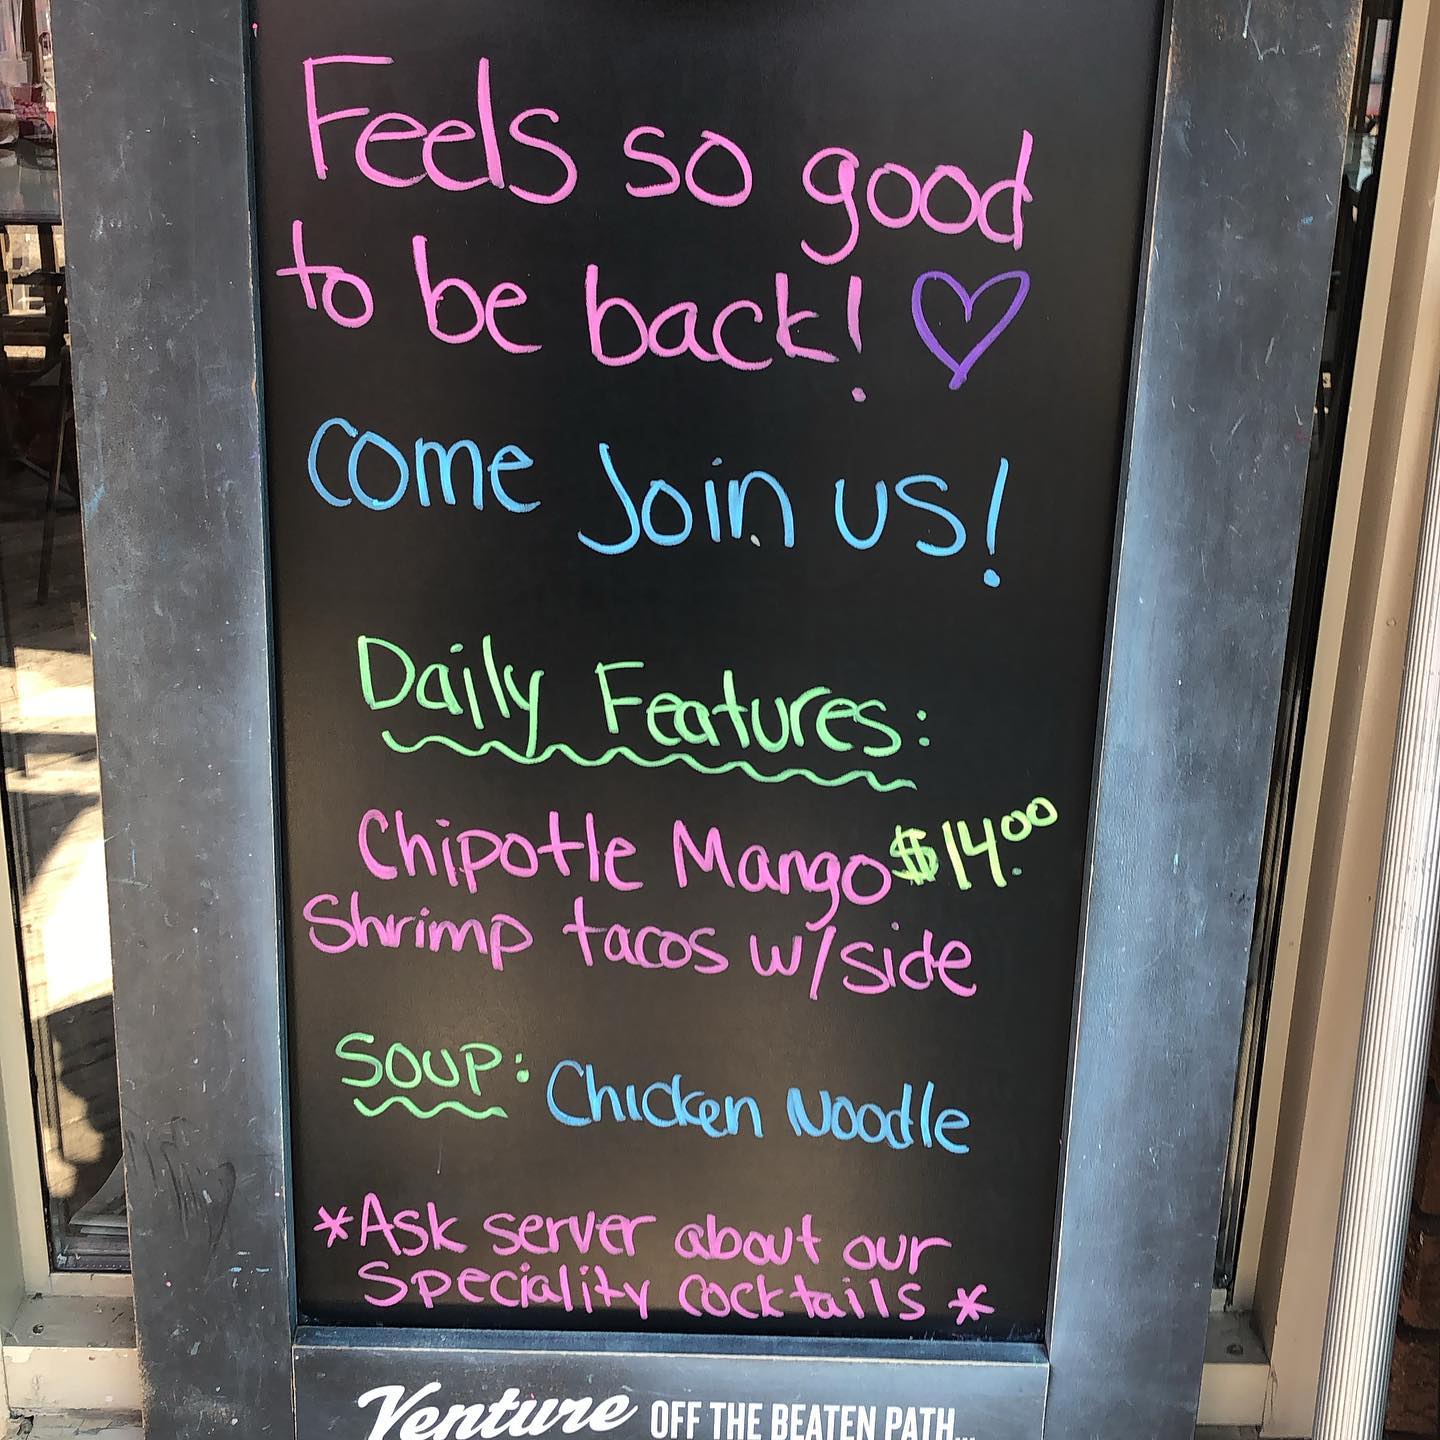 Feels so good
to be back!
come Join us!
Daily Features:
Chipotle Mango $14.00
Shrimp tacos w/side
Soup: Chicken Noodle
*Ask server about our
Speciality Cocktails *
Venture OFF THE BEATEN PATH...